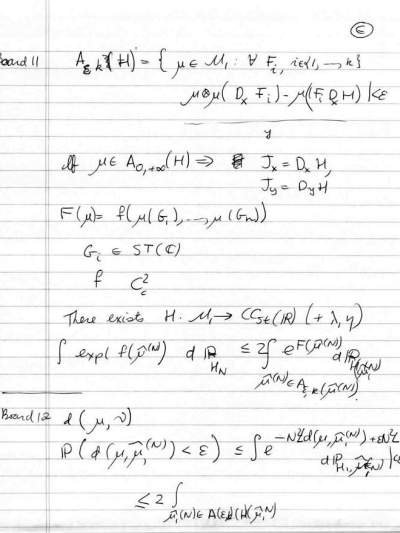 ε
Board 11 A_{ε,k}(H) = { μ ∈ M_1 : ∀ F_i, i∈{1,…,k}
μ⊗μ( D_x F_i) - μ(F_i D_x H) | < ε
y
If μ ∈ A_{0,+∞}(H) ⇒ J_x = D_x H,
J_y = D_y H
F(μ) = f(μ(G_1),…,μ(G_m))
G_i ∈ ST(ℂ)
f C_c^2
There exists H: M_1 → CC_{St}(ℝ) (+ λ, y)
∫ exp( f(μ̂^{(N)}) dℙ_{H_N} ≤ 2∫ e^{F(μ̂^{(N)})} dℙ_{H(μ̂^{(N)})}
μ̂^{(N)} ∈ A_{ε,k}(μ̂^{(N)})
Board 12 d(μ, ν)
ℙ( d(μ, μ̂_1^{(N)}) < ε) ≤ ∫ e^{-N^2 d(μ, μ̂_1^{(N)}) + εN^2 L}
≤ 2 ∫
μ̂_1^{(N)} ∈ A(ε,k)(H)(μ̂_1^{N})